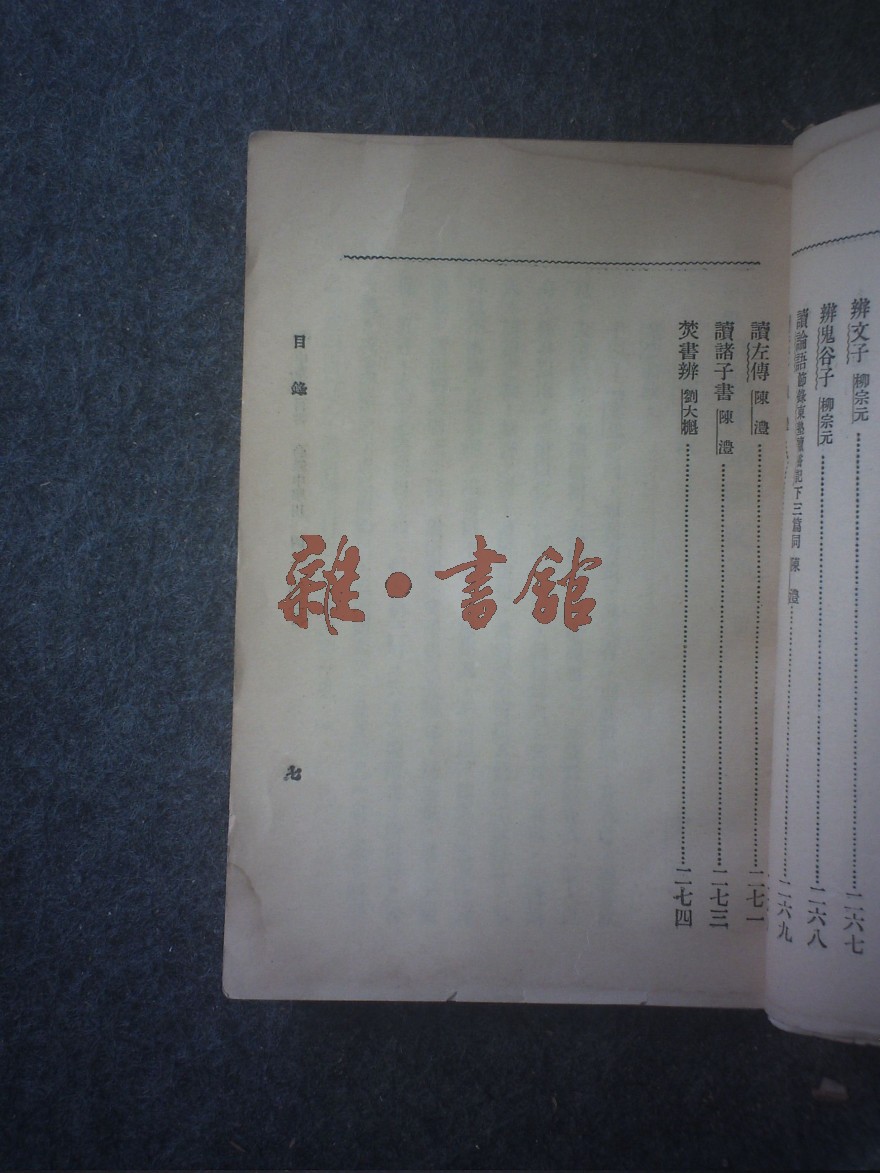 辨文子 柳宗元……二六七
辨鬼谷子 柳宗元……二六八
讀論語節錄東塾讀書記下三篇同 陳澧……二六九
讀左傳 陳澧……二七一
讀諸子書 陳澧……二七三
焚書辨 劉大櫆……二七四
目錄
七
雜·書館